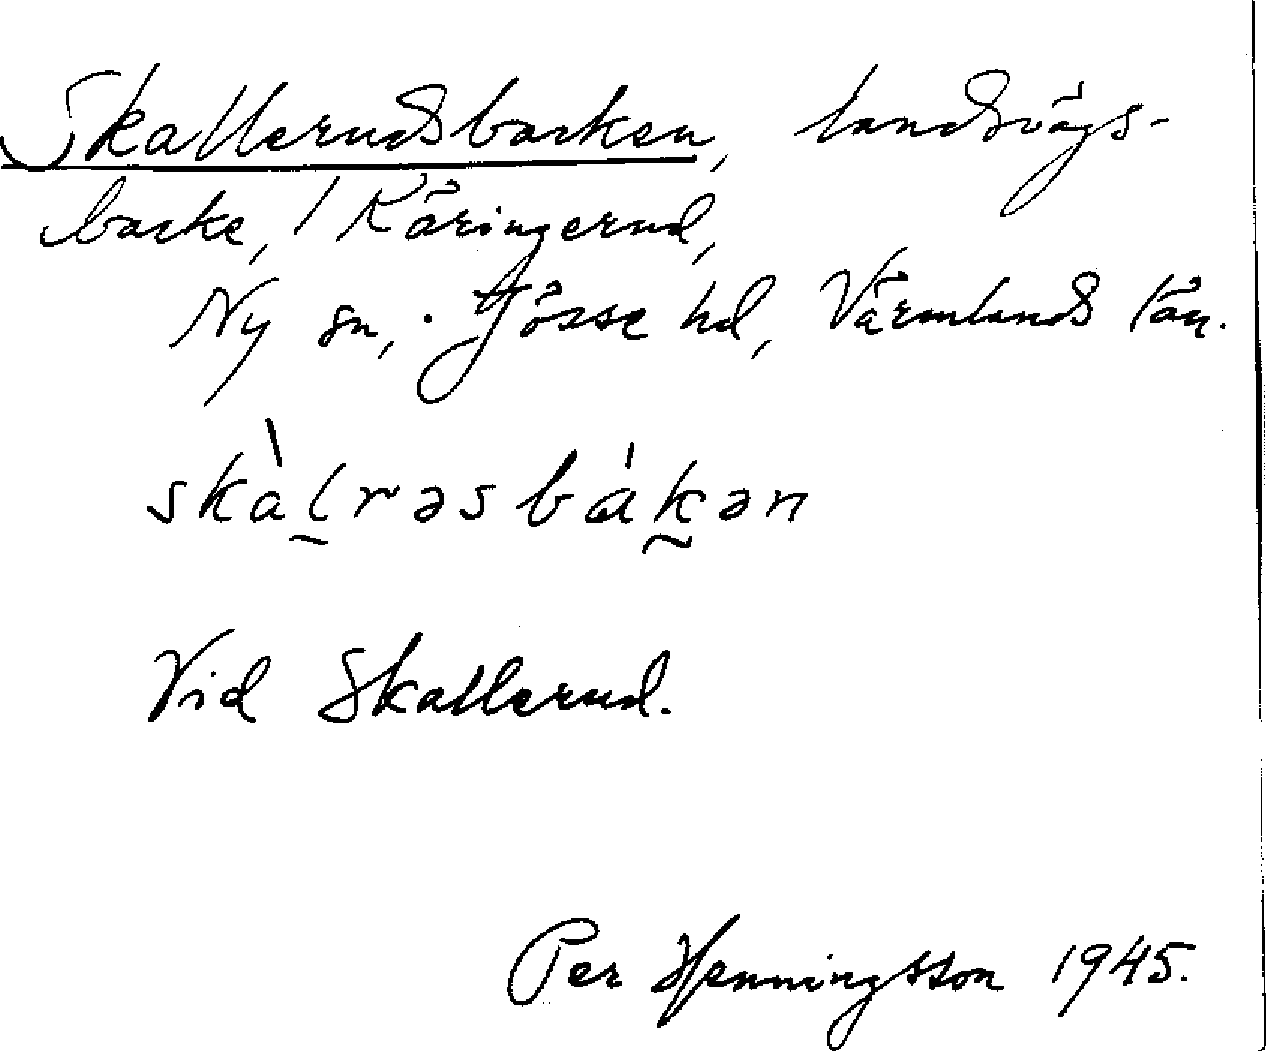 Skallerudsbacken, landsvägs-
backe, i Käringerud,
Ny sn, Jösse hd, Värmlands län.
skàl̰rəsbák̰ən
Vid Skallerud.
Per Henningsson 1945.